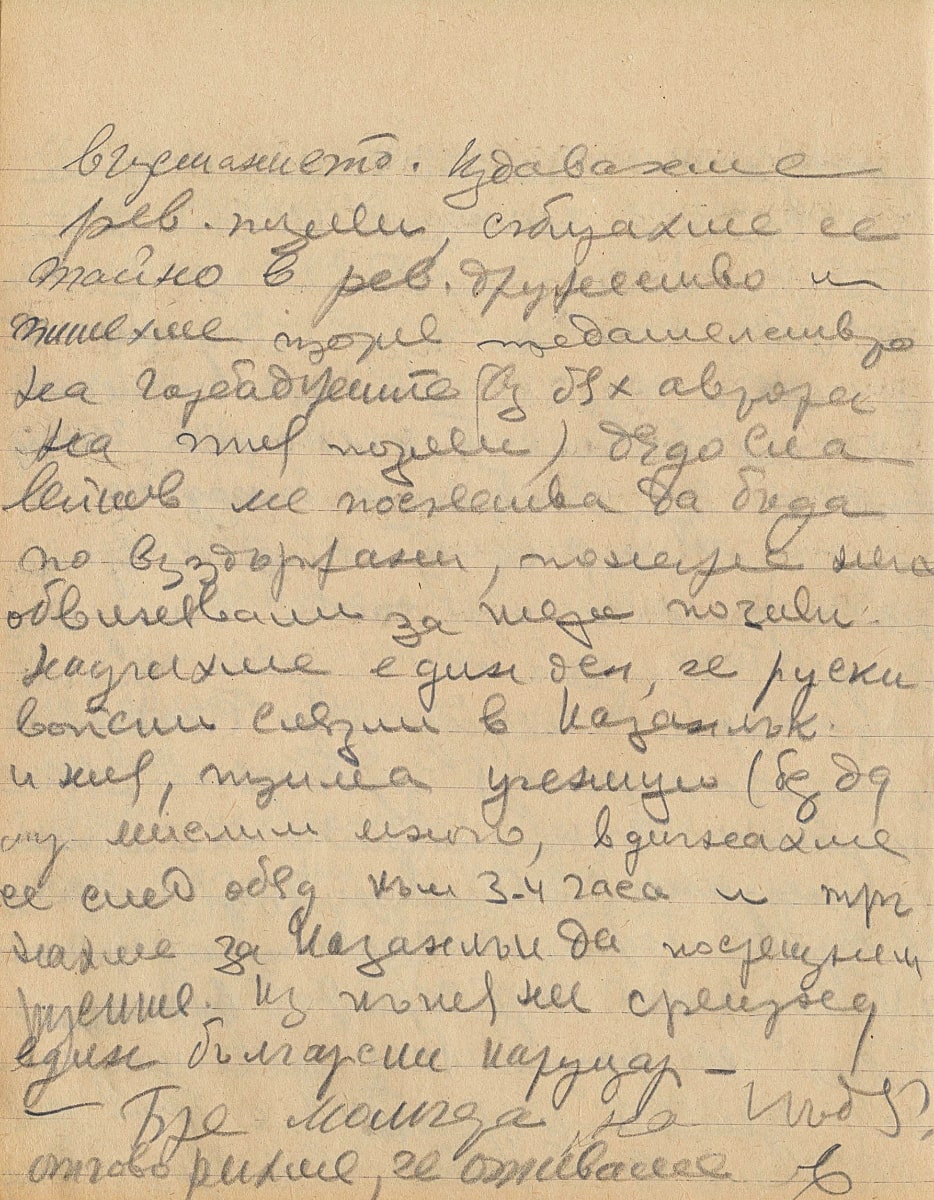 въстанието. Издавахме
рев. позиви, събирахме се
тайно в рев. дружество и
пишехме предателство
на чорбаджиите (Аз бях автора
на тия позиви) дядо Сла
вейков ме посъветва да бъда
по въздържан, понеже ме
обвинявали за тези позиви.
Научихме един ден, че руски
войски слезли в Казанлък.
и ний, трима ученици (без да
му мислим много, вдигнахме
се след обяд към 3-4 часа и тръг
нахме за Казанлък да посрещнем
русите. Из пътя ни срещна
един български каруцар —
— Бре момчета, на къде?
отговорихме, че отиваме в